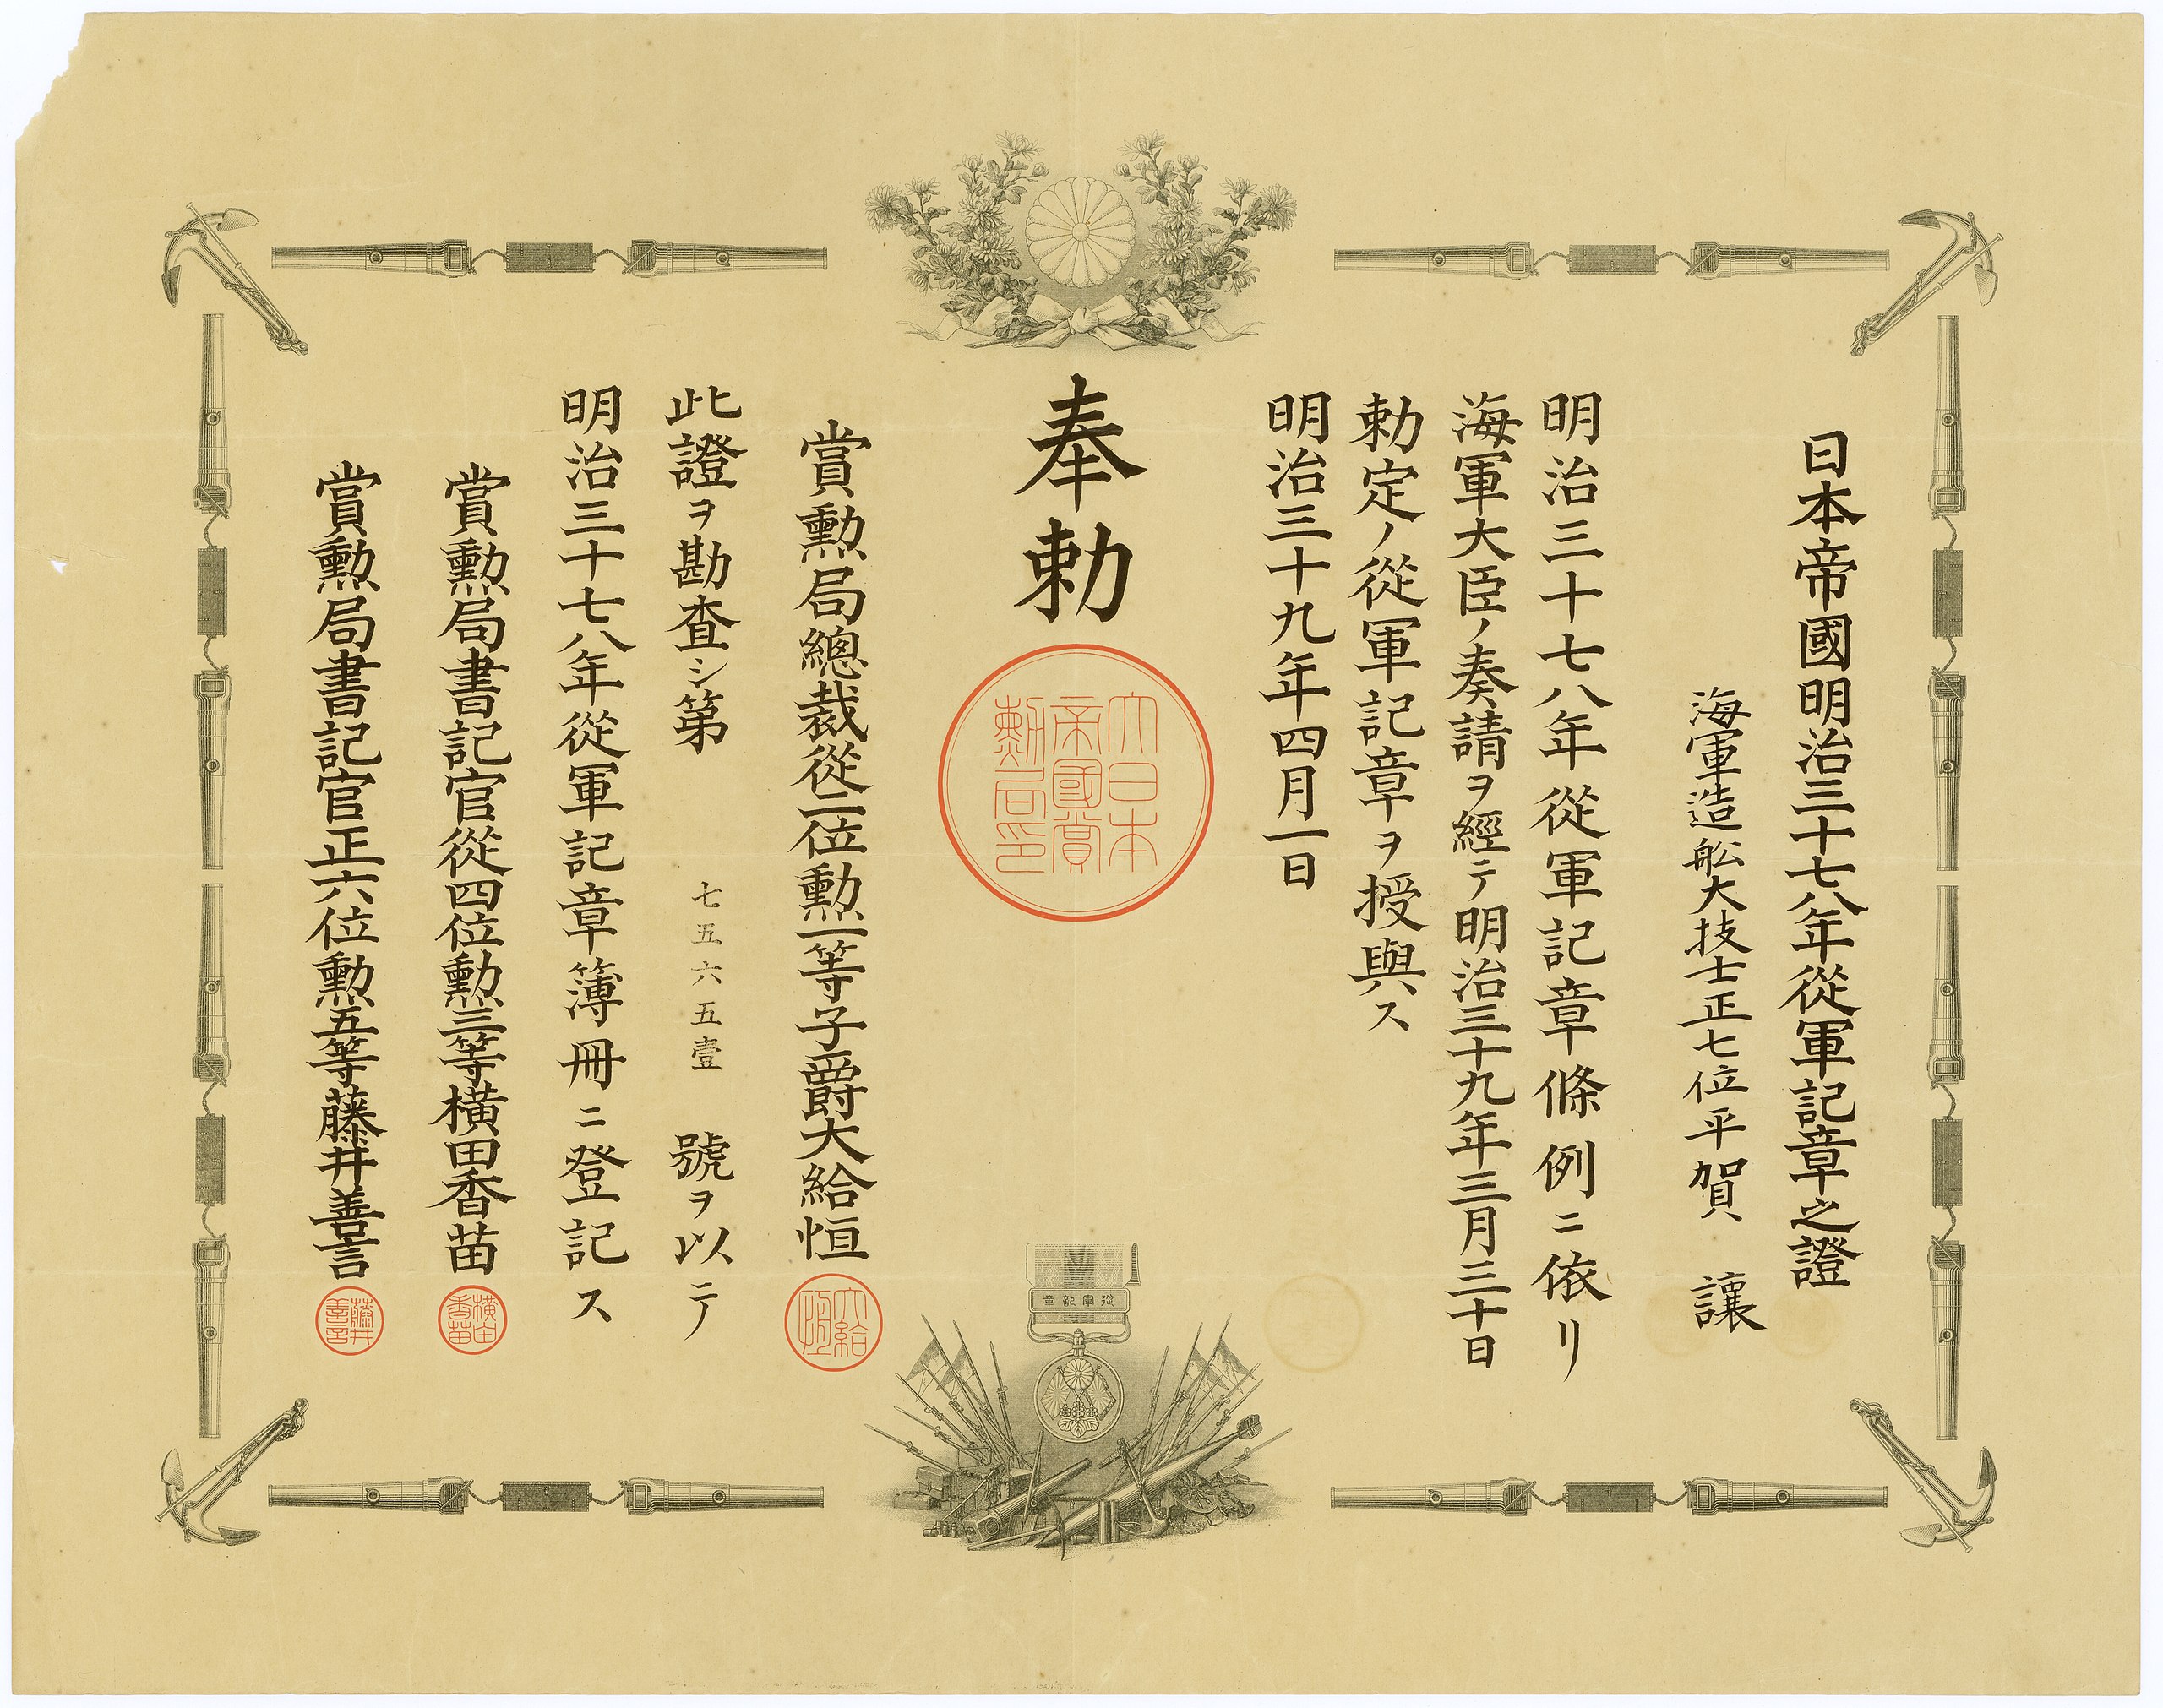 日本帝國明治三十七八年從軍記章之證
海軍造舩大技士正七位平賀 讓
明治三十七八年從軍記章條例ニ依リ
海軍大臣ノ奏請ヲ經テ明治三十九年三月三十日
勅定ノ從軍記章ヲ授與ス
明治三十九年四月一日
奉勅
大日本
帝國賞
勲局印
賞勲局總裁從二位勲一等子爵大給恒
大給
恒
此證ヲ勘查シ第七五六五壹號ヲ以テ
明治三十七八年從軍記章簿冊ニ登記ス
賞勲局書記官從四位勲三等橫田香苗
橫田
香苗
賞勲局書記官正六位勲五等藤井善言
藤井
善言
從軍記章